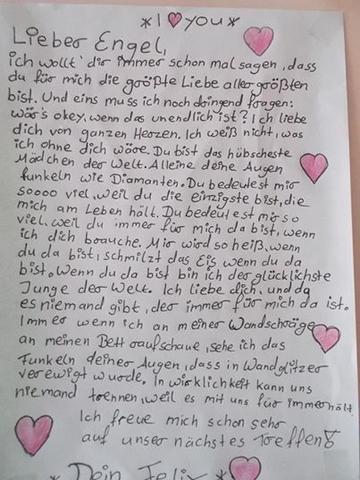 *I ♥ you*
Lieber Engel,
ich wollt' dir immer schon mal sagen, dass
du für mich die größte Liebe aller größten
bist. Und eins muss ich noch dringend fragen:
wär's okey, wenn das unendlich ist? Ich liebe
dich von ganzen Herzen. Ich weiß nicht, was
ich ohne dich wäre. Du bist das hübscheste
Mädchen der Welt. Alleine deine Augen
funkeln wie Diamanten. Du bedeutest mir
soooo viel, weil du die einzigste bist, die
mich am Leben hält. Du bedeutest mir so
viel, weil du immer für mich da bist, wenn
ich dich brauche. Mir wird so heiß, wenn
du da bist, schmilzt das Eis wenn du da
bist. Wenn du da bist bin ich der glücklichste
Junge der Welt. Ich liebe dich, und da
es niemand gibt, der immer für mich da ist.
Immer wenn ich an meiner Wandschräge
an meinen Bett raufschaue, sehe ich das
Funkeln deiner Augen, dass in Wandglitzer
verewigt wurde. In wirklichkeit kann uns
niemand trennen, weil es mit uns für immer hält
Ich freue mich schon sehr
auf unser nächstes Treffen
* Dein Felix *